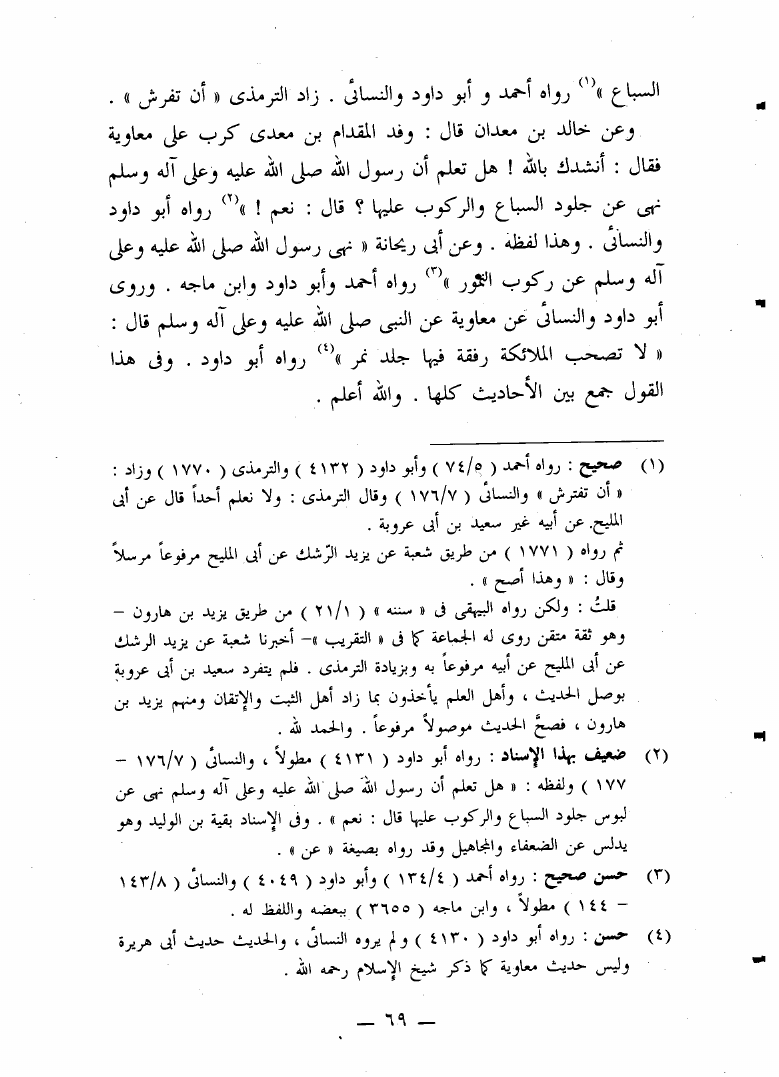 السباع »(١) رواه أحمد و أبو داود والنسائى . زاد الترمذى « أن تفرش » .
وعن خالد بن معدان قال : وفد المقدام بن معدى كرب على معاوية
فقال : أنشدك بالله ! هل تعلم أن رسول الله صلى الله عليه وعلى آله وسلم
نهى عن جلود السباع والركوب عليها ؟ قال : نعم ! »(٢) رواه أبو داود
والنسائى . وهذا لفظه . وعن أبى ريحانة « نهى رسول الله صلى الله عليه وعلى
آله وسلم عن ركوب النمور »(٣) رواه أحمد وأبو داود وابن ماجه . وروى
أبو داود والنسائى عن معاوية عن النبى صلى الله عليه وعلى آله وسلم قال :
« لا تصحب الملائكة رفقة فيها جلد نمر »(٤) رواه أبو داود . وفى هذا
القول جمع بين الأحاديث كلها . والله أعلم .
(١) صحيح : رواه أحمد ( ٧٤/٥ ) وأبو داود ( ٤١٣٢ ) والترمذى ( ١٧٧٠ ) وزاد :
« أن تفترش » والنسائى ( ١٧٦/٧ ) وقال الترمذى : ولا نعلم أحداً قال عن أبى
المليح. عن أبيه غير سعيد بن أبى عروبة .
ثم رواه ( ١٧٧١ ) من طريق شعبة عن يزيد الرّشك عن أبى المليح مرفوعاً مرسلاً
وقال : « وهذا أصح » .
قلتُ : ولكن رواه البيهقى فى « سننه » ( ٢١/١ ) من طريق يزيد بن هارون –
وهو ثقة متقن روى له الجماعة كما فى « التقريب »– أخبرنا شعبة عن يزيد الرشك
عن أبى المليح عن أبيه مرفوعاً به وبزيادة الترمذى . فلم يتفرد سعيد بن أبى عروبة
بوصل الحديث ، وأهل العلم يأخذون بما زاد أهل الثبت والإتقان ومنهم يزيد بن
هارون ، فصحَّ الحديث موصولاً مرفوعاً . والحمد لله .
(٢) ضعيف بهذا الإسناد : رواه أبو داود ( ٤١٣١ ) مطولاً ، والنسائى ( ١٧٦/٧ –
١٧٧ ) ولفظه : « هل تعلم أن رسول الله صلى الله عليه وعلى آله وسلم نهى عن
لبوس جلود السباع والركوب عليها قال : نعم » . وفى الإسناد بقية بن الوليد وهو
يدلس عن الضعفاء والمجاهيل وقد رواه بصيغة « عن » .
(٣) حسن صحيح : رواه أحمد ( ١٣٤/٤ ) وأبو داود ( ٤٠٤٩ ) والنسائى ( ١٤٣/٨
– ١٤٤ ) مطولاً ، وابن ماجه ( ٣٦٥٥ ) ببعضه واللفظ له .
(٤) حسن : رواه أبو داود ( ٤١٣٠ ) ولم يروه النسائى ، والحديث حديث أبى هريرة
وليس حديث معاوية كما ذكر شيخ الإسلام رحمه الله .
— ٦٩ —